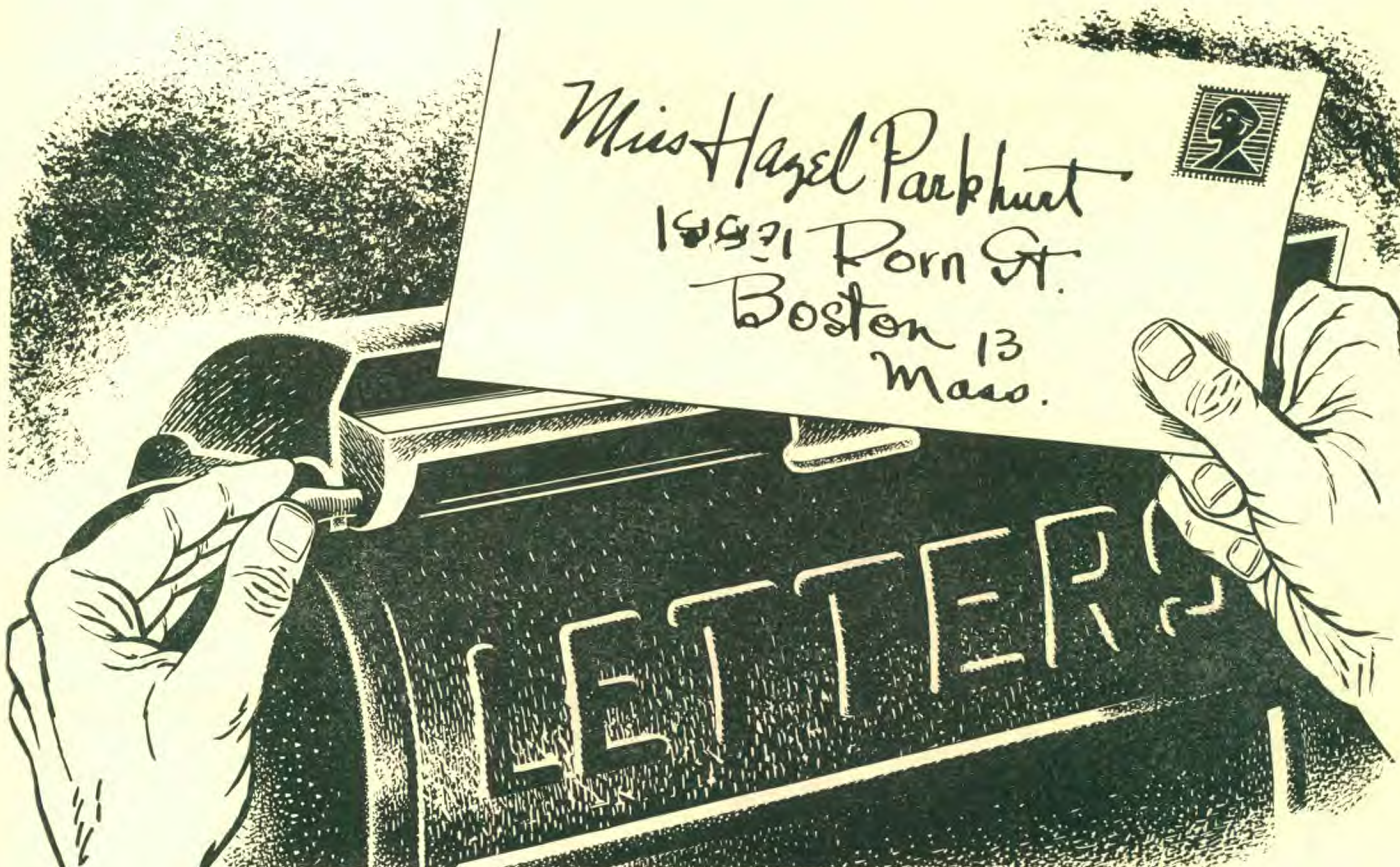 Miss Hazel Parkhurt
St.
Boston 13
Mass.
LETTERS